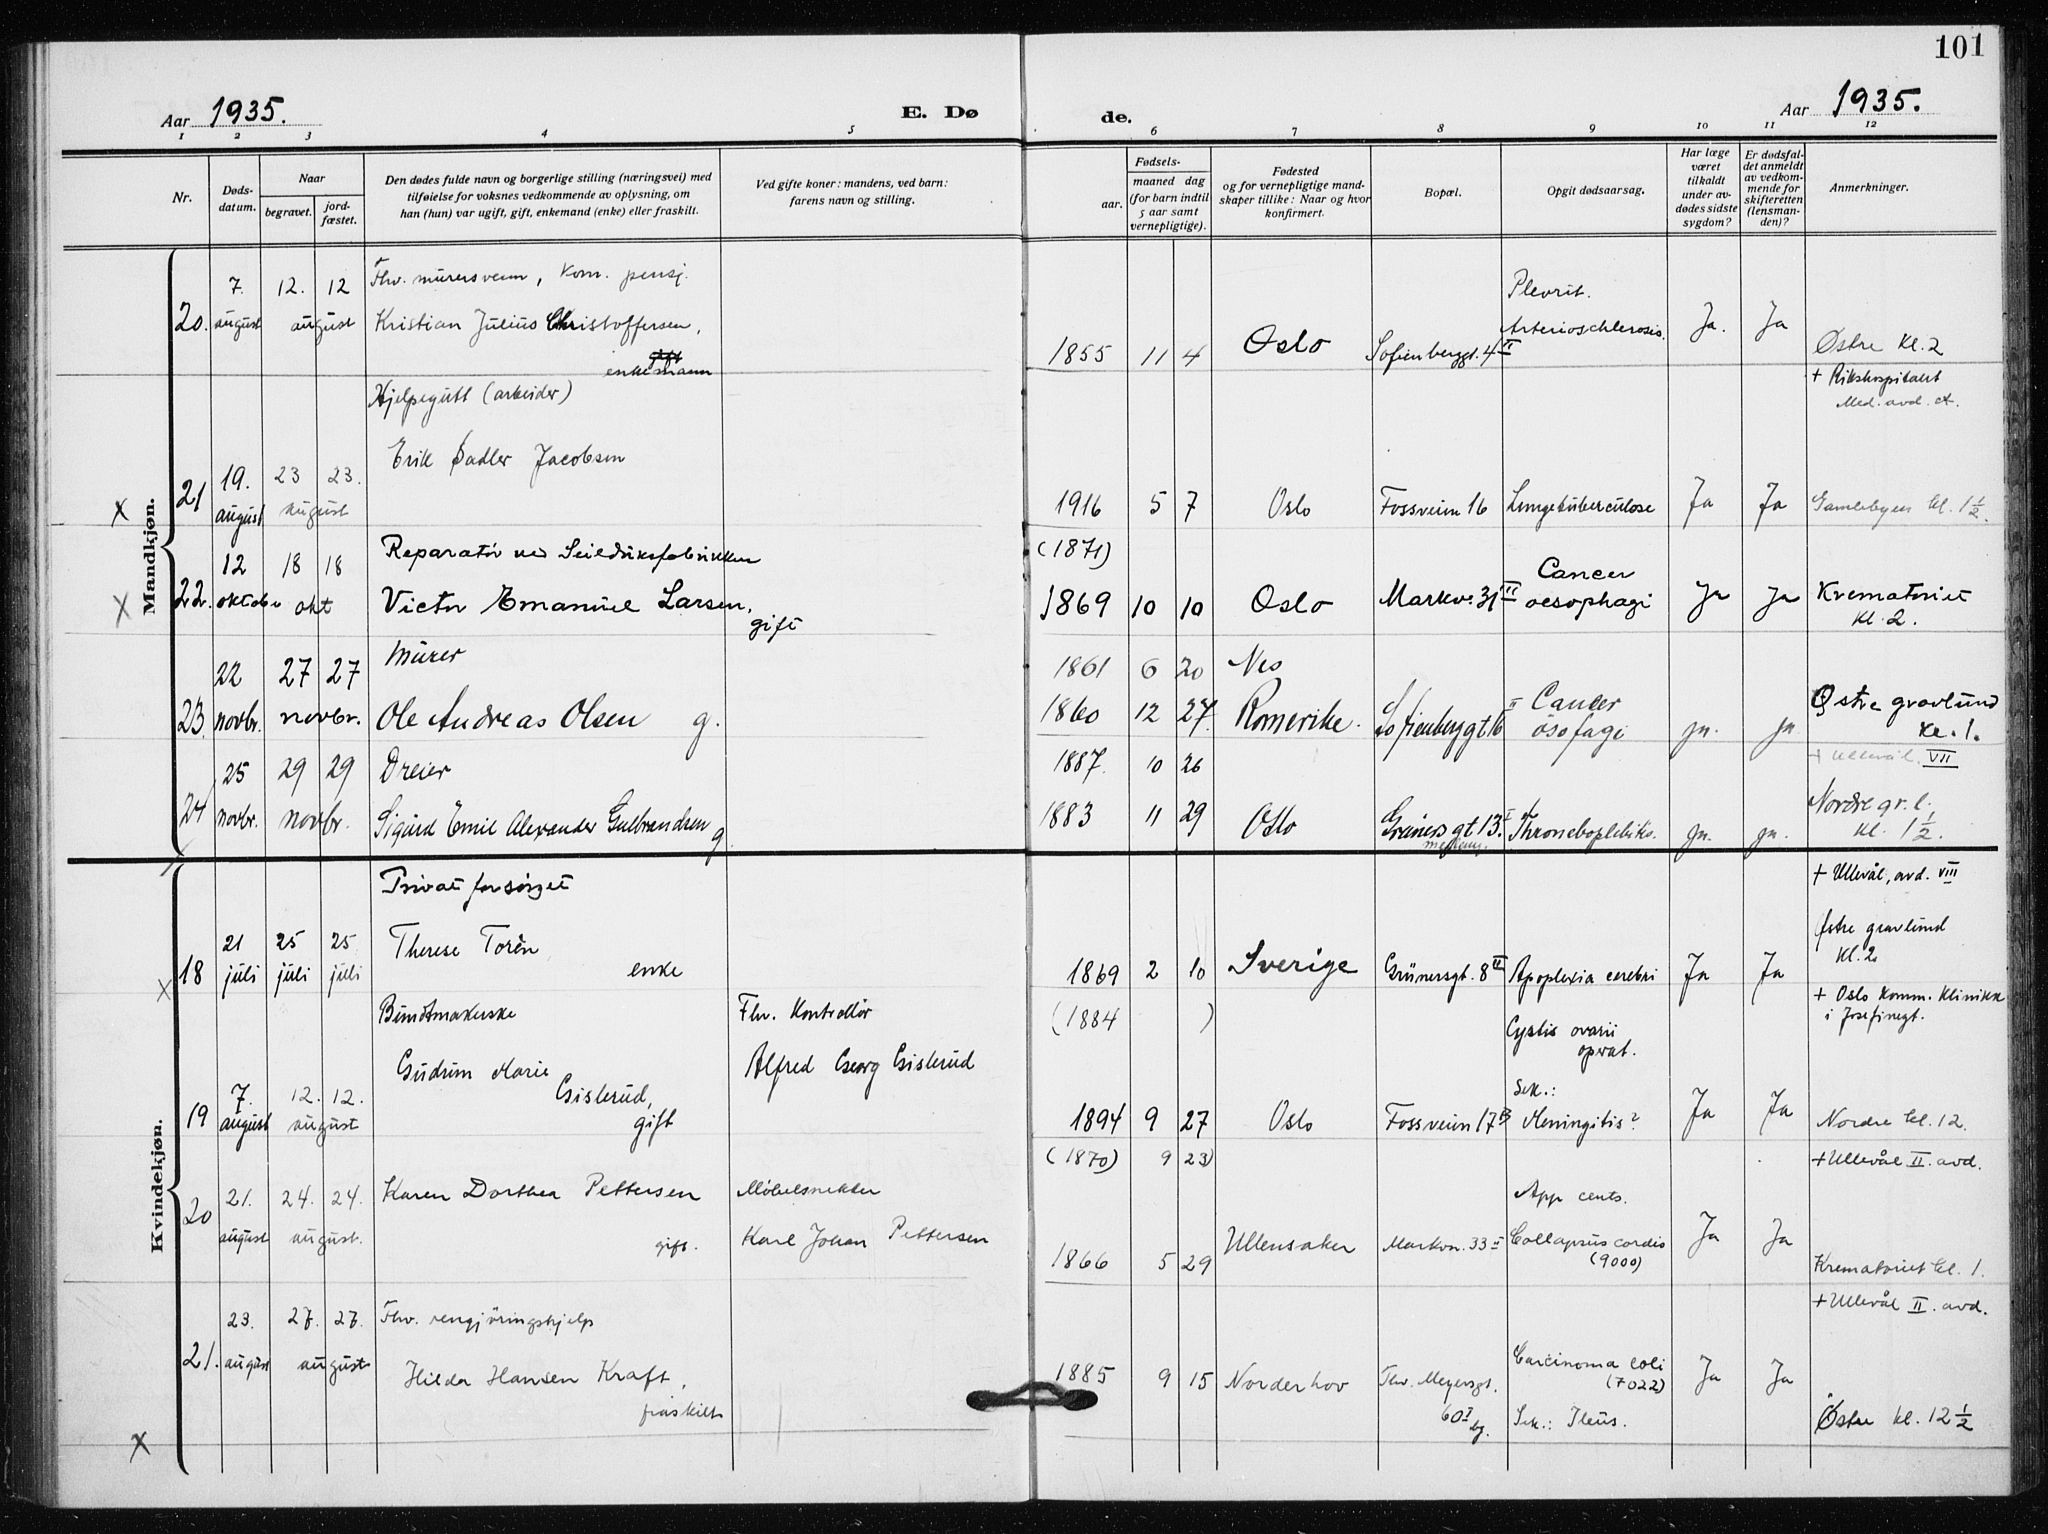 101
Aar 1935.
E. Dø
de.
Aar 1935.
1 2 3 4 5 6 7 8 9 10 11 12
Nr.
Døds-
datum.
Naar
begravet.
jord-
fæstet.
Den dødes fulde navn og borgerlige stilling (næringsvei) med
tilføielse for voksnes vedkommende av oplysning, om
han (hun) var ugift, gift, enkemand (enke) eller fraskilt.
Ved gifte koner: mandens, ved barn:
farens navn og stilling.
Fødsels-
aar.
maaned dag
(for barn indtil
5 aar samt
vernepligtige).
Fødested
og for vernepligtige mand-
skaper tillike: Naar og hvor
konfirmert.
Bopæl.
Opgit dødsaarsag.
Har læge
været
tilkaldt
under av-
dødes sidste
sygdom?
Er dødsfal-
det anmeldt
av vedkom-
mende for
skifteretten
(lensman-
den)?
Anmerkninger.
Mandkjøn.
20. 7. august 12. 12 august
Fhv. murersvenn, kom. pensj.
Kristian Julius Christoffersen,
enkemann
1855 11 4 Oslo Sofienberggt. 4 II
Plevrit.
Arterioschlerosis.
Ja. Ja
Østre kl. 2
X 21 19. august 23 23. august
Hjelpegutt (arbeider)
Erik Sadler Jacobsen
1916 5 7 Oslo Fossveien 16 Lungetuberculose Ja Ja
+ Rikshospitalet
Med. avd. A.
Gamlebyen kl. 1 1/2.
X 22. 12 oktober 18 18 okt
Reparatør ved Seilduksfabrikken
Victor Emanuel Larsen,
gift
(1871)
1869 10 10 Oslo Markv. 31 II
Cancer
oesophagi
Ja Ja
Krematoriet
kl. 2.
23. 22 novbr. 27 27 novbr.
Murer
Ole Andreas Olsen g.
1861 6 20 Nes
1860 12 27 Romerike. Sofienberggt 16 II
Cancer
øsofagi
ja. ja
Østre gravlund
kl. 1.
24 25 novbr. 29 29 novbr.
Dreier
Sigurd Emil Alexander Gulbrandsen
g.
1887. 10 26
1883 11 29 Oslo Grüners gt 13. I
ja. ja.
+ Ullevål. VII
Nordre gr. l.
kl. 1 1/2.
Kvindekjøn.
X 18 21 juli 25 juli 25 juli
Privat forsørget
Therese Torén
enke
1869 2 10 Sverige Grünersgt. 8 II Apoplexia cerebri Ja Ja
+ Ullevål, avd. VIII
Østre gravlund
kl. 2
19 7. august 12. 12. august
Buntmakerske
Gudrun Marie
Gislerud,
gift
Fhv. Kontrollør
Alfred Georg Gislerud
(1884 )
1894 9 27 Oslo Fossveien 17 B
Cystis ovarii
operat.
Sek.:
Meningitis?
Ja Ja
+ Oslo komm. Klinikk
i Josefinegt.
Nordre kl. 12.
20 21. august 24. 24. august.
Karen Dorthea Pettersen
gift.
Møbelsnekker
Karl Johan Pettersen
(1870) 9 23)
1866 5 29 Ullensaker Markvn. 33 I
App cents.
Collapsus cordis
(9000)
Ja Ja
+ Ullevål II. avd.
Krematoriet kl. 1.
X 21. 23. august 27. 27. august
Fhv. rengjøringshjelp
Hilda Hansen Kraft,
fraskilt
1885 9 15 Norderhov
Thv. Meyersgt.
60 I bg.
Carcinoma coli
(7022)
Sek.: Ileus.
Ja Ja
+ Ullevål II. avd.
Østre kl. 12 1/2